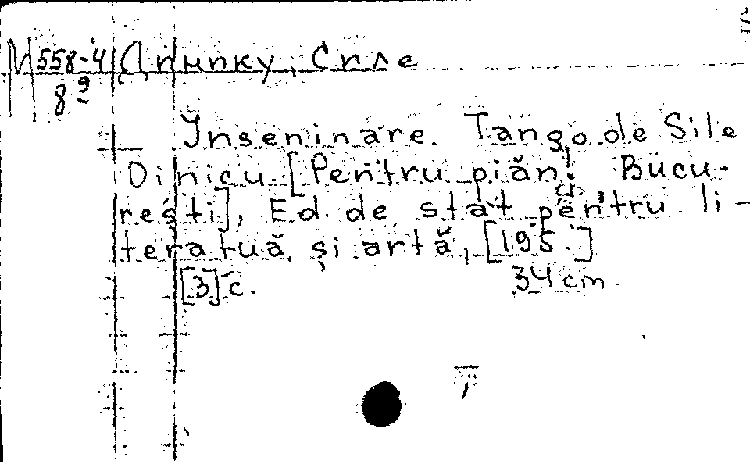 М 558-4 Динику, Силе
89
Inseninare. Tango de Sile
Dinicu [Pentru pian. Bucu-
rești], Ed. de stat pentru li-
teratuă și artă, [195.]
[3] с. 34 cm